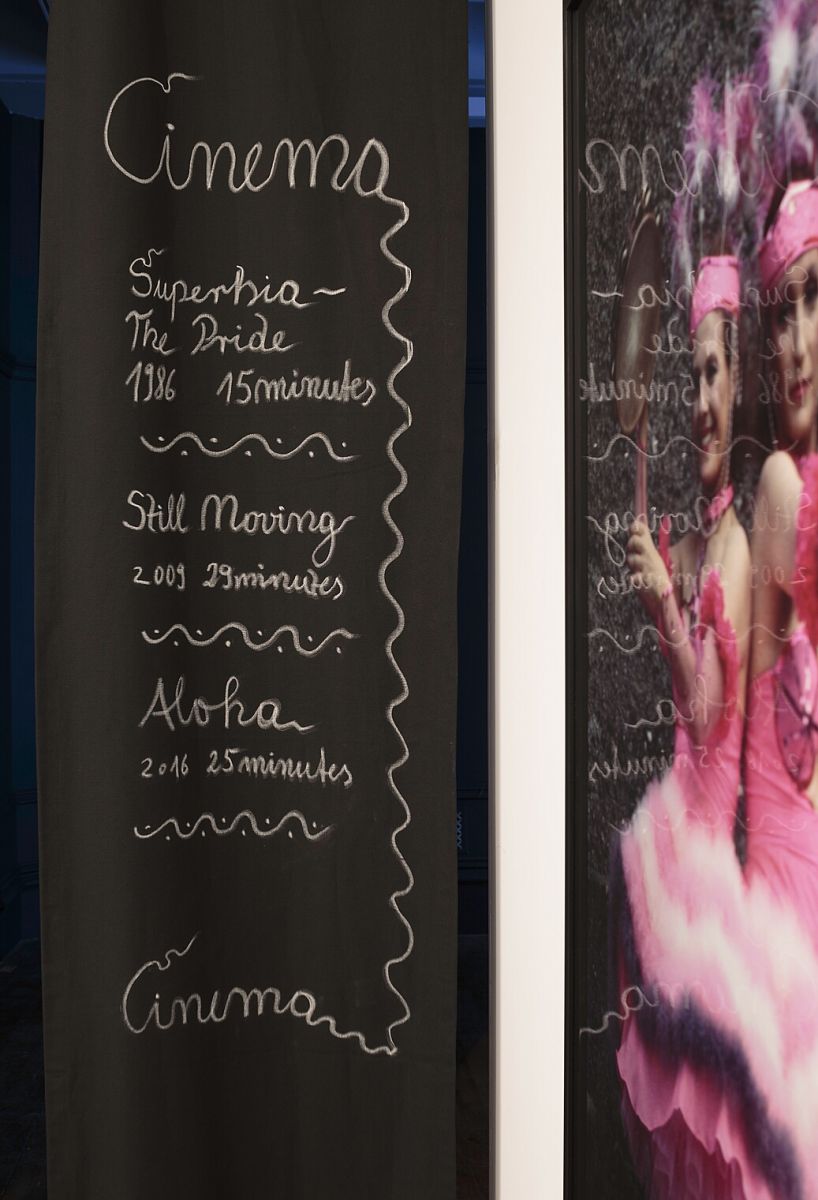 Cinema
Superbia~
The Pride
1986 15 minutes
Still Moving
2009 29 minutes
Aloha
2016 25 minutes
Cinema